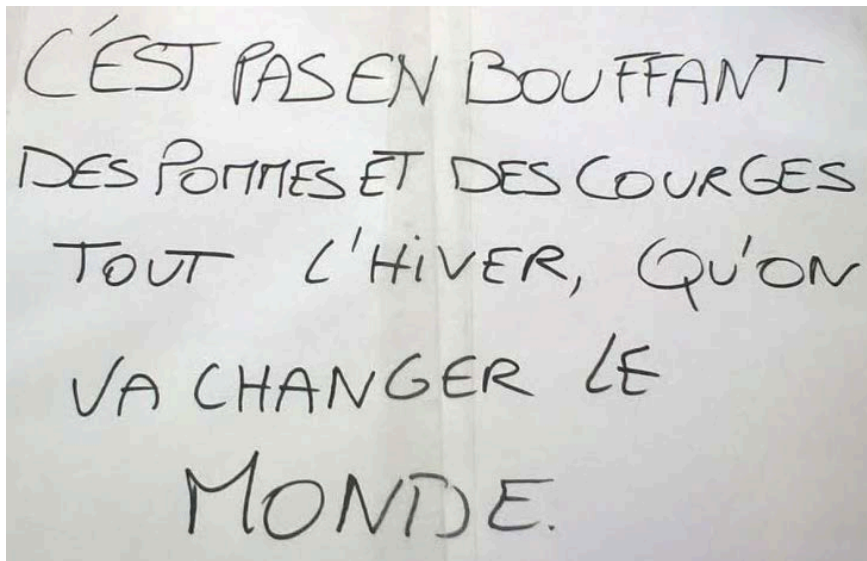 C'EST PAS EN BOUFFANT
DES POMMES ET DES COURGES
TOUT L'HiVER, QU'ON
VA CHANGER LE
MONDE.